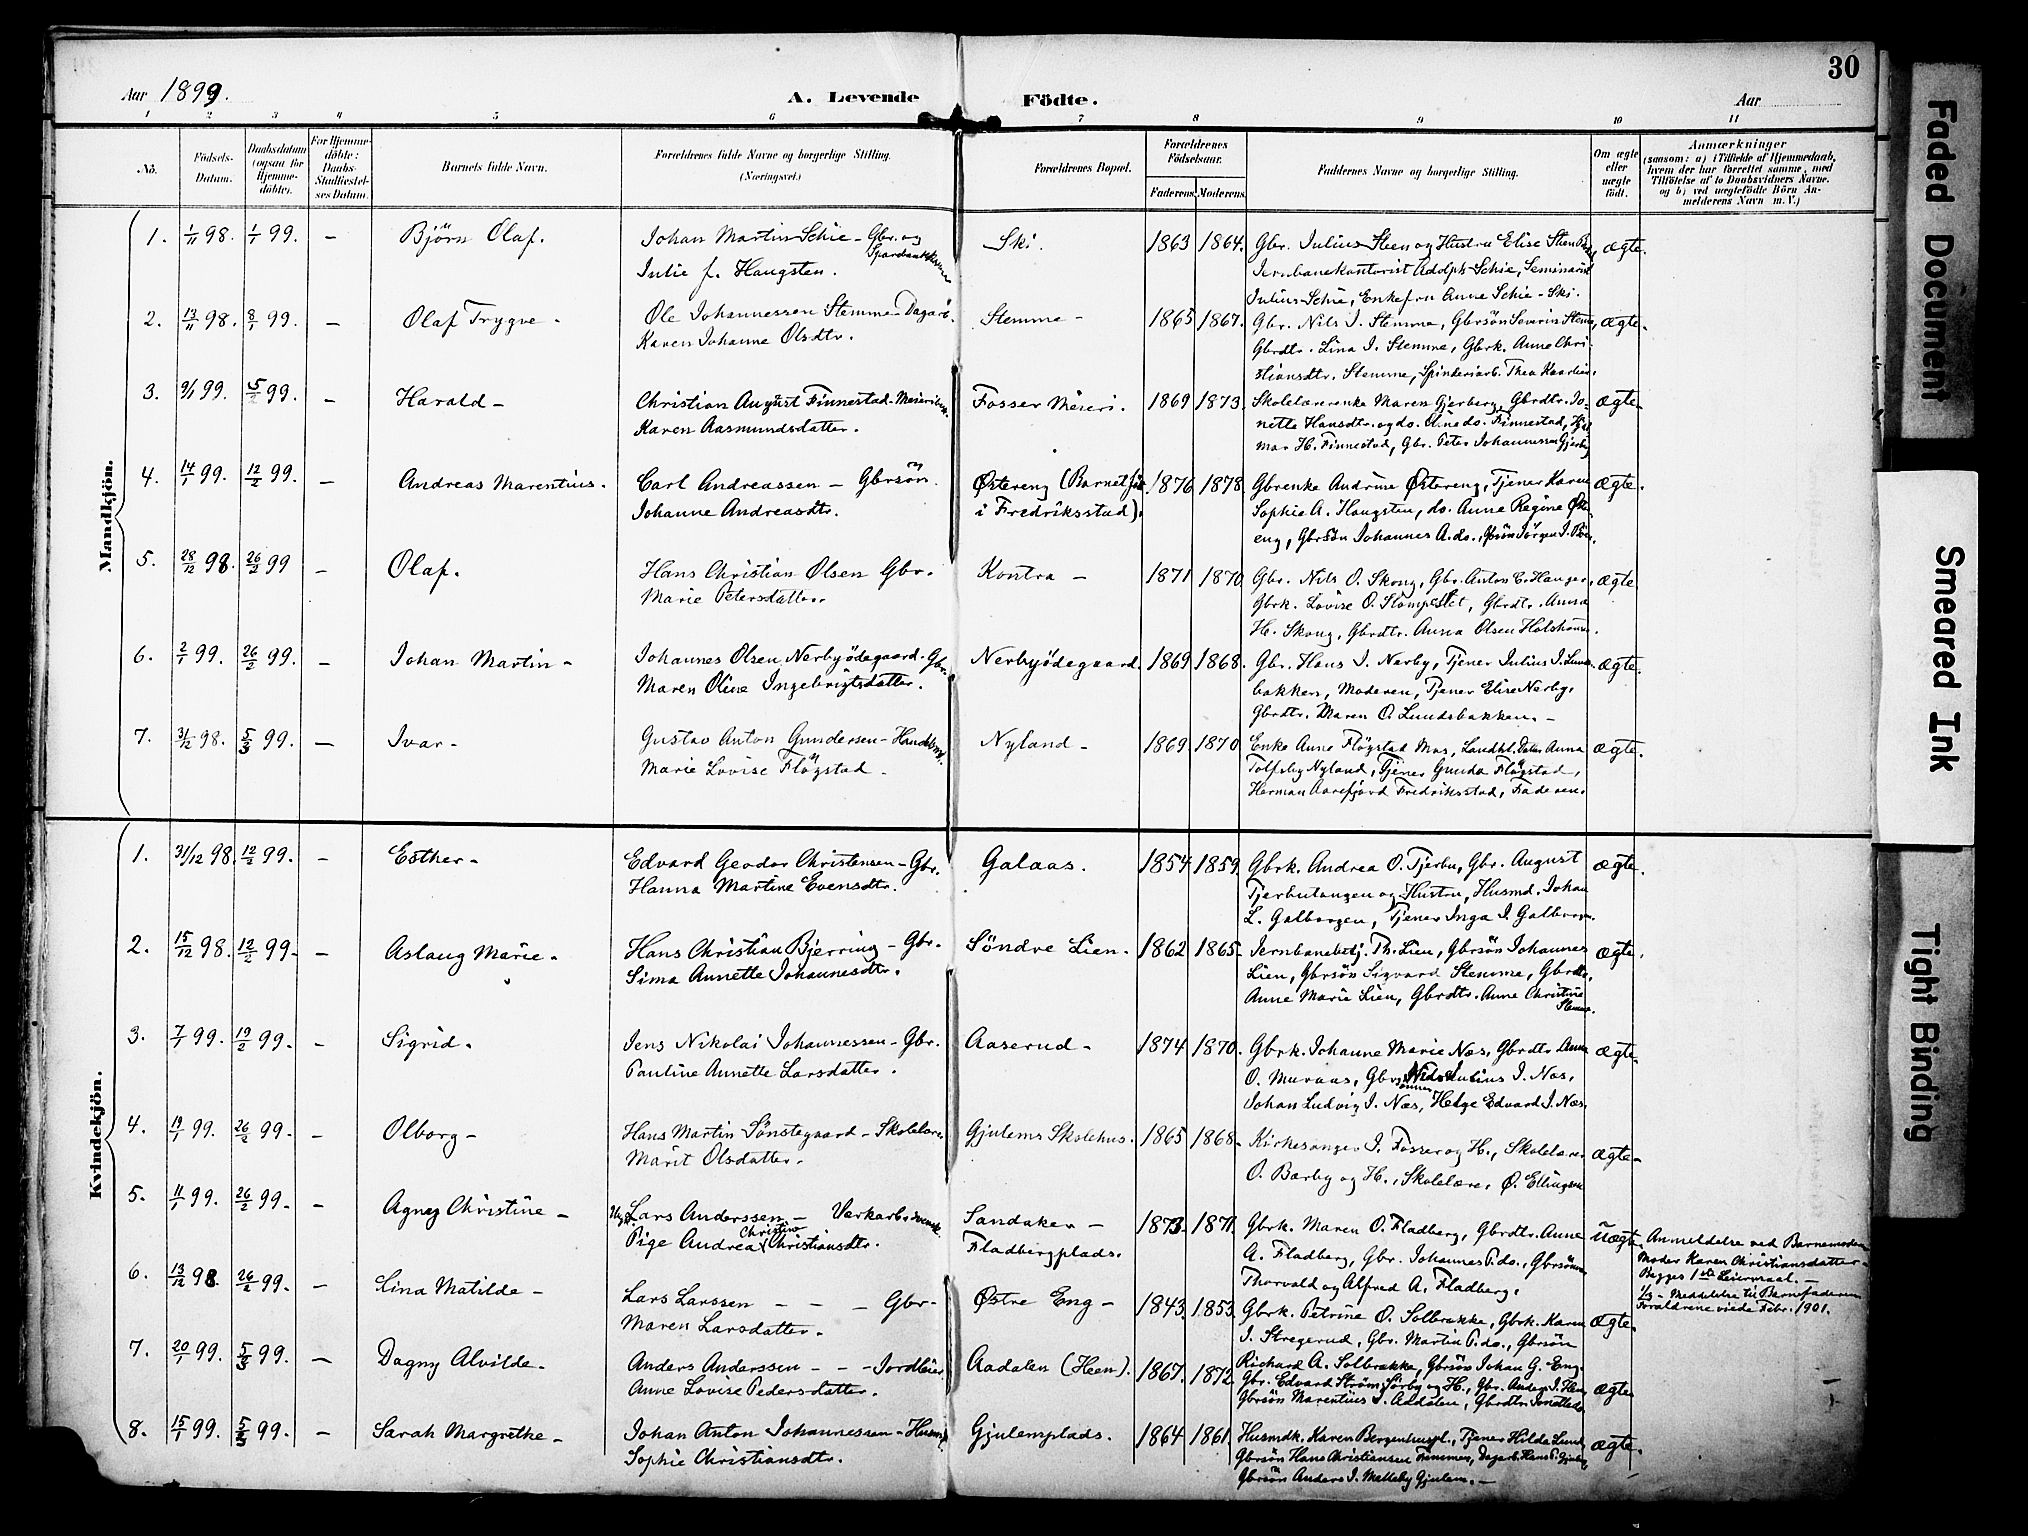 30
Aar 1899.
A. Levende Födte.
Aar
1 2 3 4 5 6 7 8 9 10 11
No.
Födsels-Datum.
Daabsdatum (ogsaa for Hjemme-döbte).
For Hjemme-döbte: Daabs-Stadfæstel-ses Datum.
Barnets fulde Navn.
Forældrenes fulde Navne og borgerlige Stilling. (Næringsvei.)
Forældrenes Bopæl.
Forældrenes Födselsaar.
Faderens. Moderens.
Faddernes Navne og borgerlige Stilling.
Om ægte eller uægte født.
Anmærkninger
(saasom: a) i Tilfælde af Hjemmedaab,
hvem der har forrettet samme, med
Tilföielse af to Daabsvidners Navne.
og b) ved uægtefödte Börn An-
melderens Navn m. V.)
Mandkjön.
1. 1/11 98. 1/1 99. – Björn Olaf. Johan Martin Schie – Gbr. og Ski. 1863 1864. Gbr. Julius Steen og Hustru Elise Steen ægte.
Julie f. Haugsten. Jernbanekontorist Adolph Schie, Seminarist
Julius Schie, Enkefru Anne Schie – Ski.
2. 13/11 98. 8/1 99. – Olaf Trygve – Ole Johannessen Stemme – Dagarb. Stemme – 1865 1867. Gbr. Nils J. Stemme, Gbrsön Severin Stemme, ægte.
Karen Johanne Olsdtr. Gbrdtr. Lina J. Stemme, Gbrk. Anne Chri-
stiansdtr. Stemme, Spinderiarb. Thea
3. 9/1 99. 5/2 99. – Harald – Christian August Finnestad – Fosser Meieri. 1869 1873. Skolelærerenke Maren Gjerberg, Gbrdtr. Jo- ægte.
Karen Aasmundsdatter. nette Hansdtr. og do. Oline do. Finnestad, Hjal
mar H. Finnestad, Gbr. Peter Johannesen Gjerberg
4. 14/1 99. 12/2 99. – Andreas Marentius. Carl Andreassen – Gbrsön. Østereng (Barnet föd 1876 1878 Gbrenke Andrine Østereng, Tjener Karen ægte.
Johanne Andreasdtr. i Fredriksstad). Sophie A. Haugsten, do. Anne Regine Øster-
eng, Gbrsön Johannes A. do., Gbrsön Jörgen J.
5. 28/12 98. 26/2 99 – Olaf. Hans Christian Olsen Gbr. Kontra – 1871 1870 Gbr. Nils O. Skoug, Gbr. Anton E. ægte
Marie Petersdatter. Gbrk. Lovise O. Slompeslet, Gbrdtr. Anna
H. Skoug, Gbrdtr. Anna Olsen
6. 2/1 99. 26/2 99. – Johan Martin – Johannes Olsen Nerbyödegaard – Gbr. Nerbyödegaard. 1869 1868. Gbr. Hans J. Nerby, Tjener Julius J. Lunds- ægte.
Maren Oline Ingebrigtsdatter. bakken, Moderen, Tjener Elise Nerby,
Gbrdtr. Maren O. Lundsbakken. –
7. 31/12 98. 5/3 99. – Ivar – Gustav Anton Gundersen – Nyland – 1869 1870 Enke Anne Flögstad Mos, Anna ægte.
Marie Lovise Flögstad. Tolfsby Nyland, Tjener Gunda Flögstad,
Herman Aarefjord Fredriksstad, Faderen.
Kvindekjön.
1. 31/12 98. 12/2 99. – Esther – Edvard Geodor Christensen – Gbr. Galaas. 1854 1859. Gbrk. Andrea O. Tjerbu, Gbr. August ægte.
Hanna Martine Evensdtr. Tjerbutangen og Hustru, Husmd. Johan
L. Galborgen, Tjener Inga J. Galborgen.
2. 15/12 98. 12/2 99. – Aslaug Marie – Hans Christian Bjerring – Gbr. Söndre Lien. 1862 1865. Jernbanebetj. Th. Lien, Gbrsön Johannes ægte.
Sima Annette Johannesdtr. Lien, Gbrsön Sigvard Stemme, Gbrdtr.
Anne Marie Lien, Gbrdtr. Anne Christine
Stemme.
3. 7/1 99. 19/2 99. – Sigrid. Jens Nikolai Johannessen – Gbr. Aaserud – 1874 1870. Gbrk. Johanne Marie Næs, Gbrdtr. Anna ægte.
Pauline Annette Larsdatter. O. Muraas, Julius J. Næs,
Johan Ludvig J. Næs, Helge Edvard J. Næs.
4. 19/1 99. 26/2 99. – Olborg – Hans Martin Sønstegaard – Skolelærer Gjulems Skolehus. 1865 1868 – Kirkesanger J. Fosser og H., Skolelærer ægte –
Marit Olsdatter. O. Barby og H., Skolelærer Ø. Ellingsen
5. 11/1 99. 26/2 99. – Agnes Christine – Ungk. Lars Anderssen – Sandaker – 1873. 1871. Gbrk. Maren O. Fladberg, Gbrdtr. Anne uægte. Anmeldelse ved Barnemoderens
Pige Andrea Christine Christiansdtr. Fladbergplads. A. Fladberg, Gbr. Johannes P. do., Gbrsönner Moder Karen Christiansdatter.
Thorvald og Alfred A. Fladberg. Begges 1ste Leiermaal. –
– Meddelelse til Barnefaderen
Forældrene viede Febr. 1901.
6. 13/12 98 26/2 99. – Lina Matilde – Lars Larssen – – – Gbr – Østre Eng – 1843. 1853. Gbrk. Petrine O. Solbrække, Gbrk. Karen ægte.
Maren Larsdatter. J. Stregerud, Gbr. Martin P. do., Gbrsön
Richard A. Solbrække, Gbrsön Johan G. Eng.
7. 20/1 99. 5/3 99. – Dagny Alvilde. Anders Anderssen – – – Jordleier Aadalen (Heen). 1867. 1872. Gbr. Edvard Ström Sörby og H., Gbr. Anders J. Heen ægte.
Anne Lovise Pedersdatter. Gbrsön Marentius J. Aadalen, Gbrdtr.
8. 15/1 99. 5/3 99. – Sarah Margrethe – Johan Anton Johannessen – Husmd. Gjulemplads. 1864 1861. Husmdk. Karen Bergenhuspl., Tjener Hilda Lund ægte.
Sophie Christiansdtr. Gbrsön Hans Christiansen Timmen, Dagarb. Hans
Gbrsön Anders J. Melleby Gjulem. –
Faded Document
Smeared Ink
Tight Binding